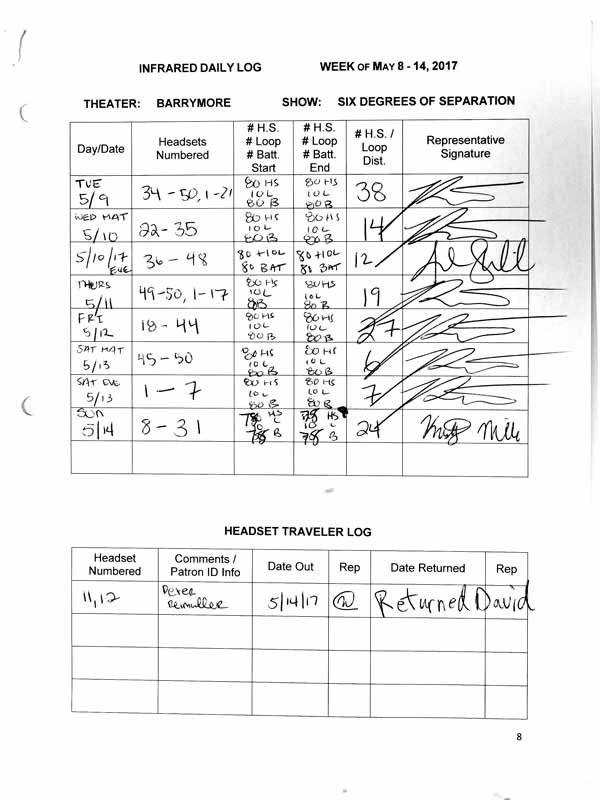 INFRARED DAILY LOG WEEK OF MAY 8 - 14, 2017
THEATER: BARRYMORE SHOW: SIX DEGREES OF SEPARATION
Day/Date Headsets Numbered # H.S. # Loop # Batt. Start # H.S. # Loop # Batt. End # H.S. / Loop Dist. Representative Signature
TUE 5/9 34-50, 1-21 80 HS 10 L 80 B 80 HS 10 L 80 B 38
WED MAT 5/10 22-35 80 HS 10 L 80 B 80 HS 10 L 80 B 14
5/10/17 EVE 36-48 80 + 10L 80 BAT 80 + 10L 80 BAT 12
THURS 5/11 49-50, 1-17 80 HS 10 L 80 B 80 HS 10 L 80 B 19
FRI 5/12 18-44 80 HS 10 L 80 B 80 HS 10 L 80 B 27
SAT MAT 5/13 45-50 80 HS 10 L 80 B 80 HS 10 L 80 B 6
SAT EVE 5/13 1-7 80 HS 10 L 80 B 80 HS 10 L 80 B 7
SUN 5/14 8-31 78 HS L 78 B 78 HS 10 L 78 B 24
HEADSET TRAVELER LOG
Headset Numbered Comments / Patron ID Info Date Out Rep Date Returned Rep
11, 12 Peter 5/14/17 Returned David
8